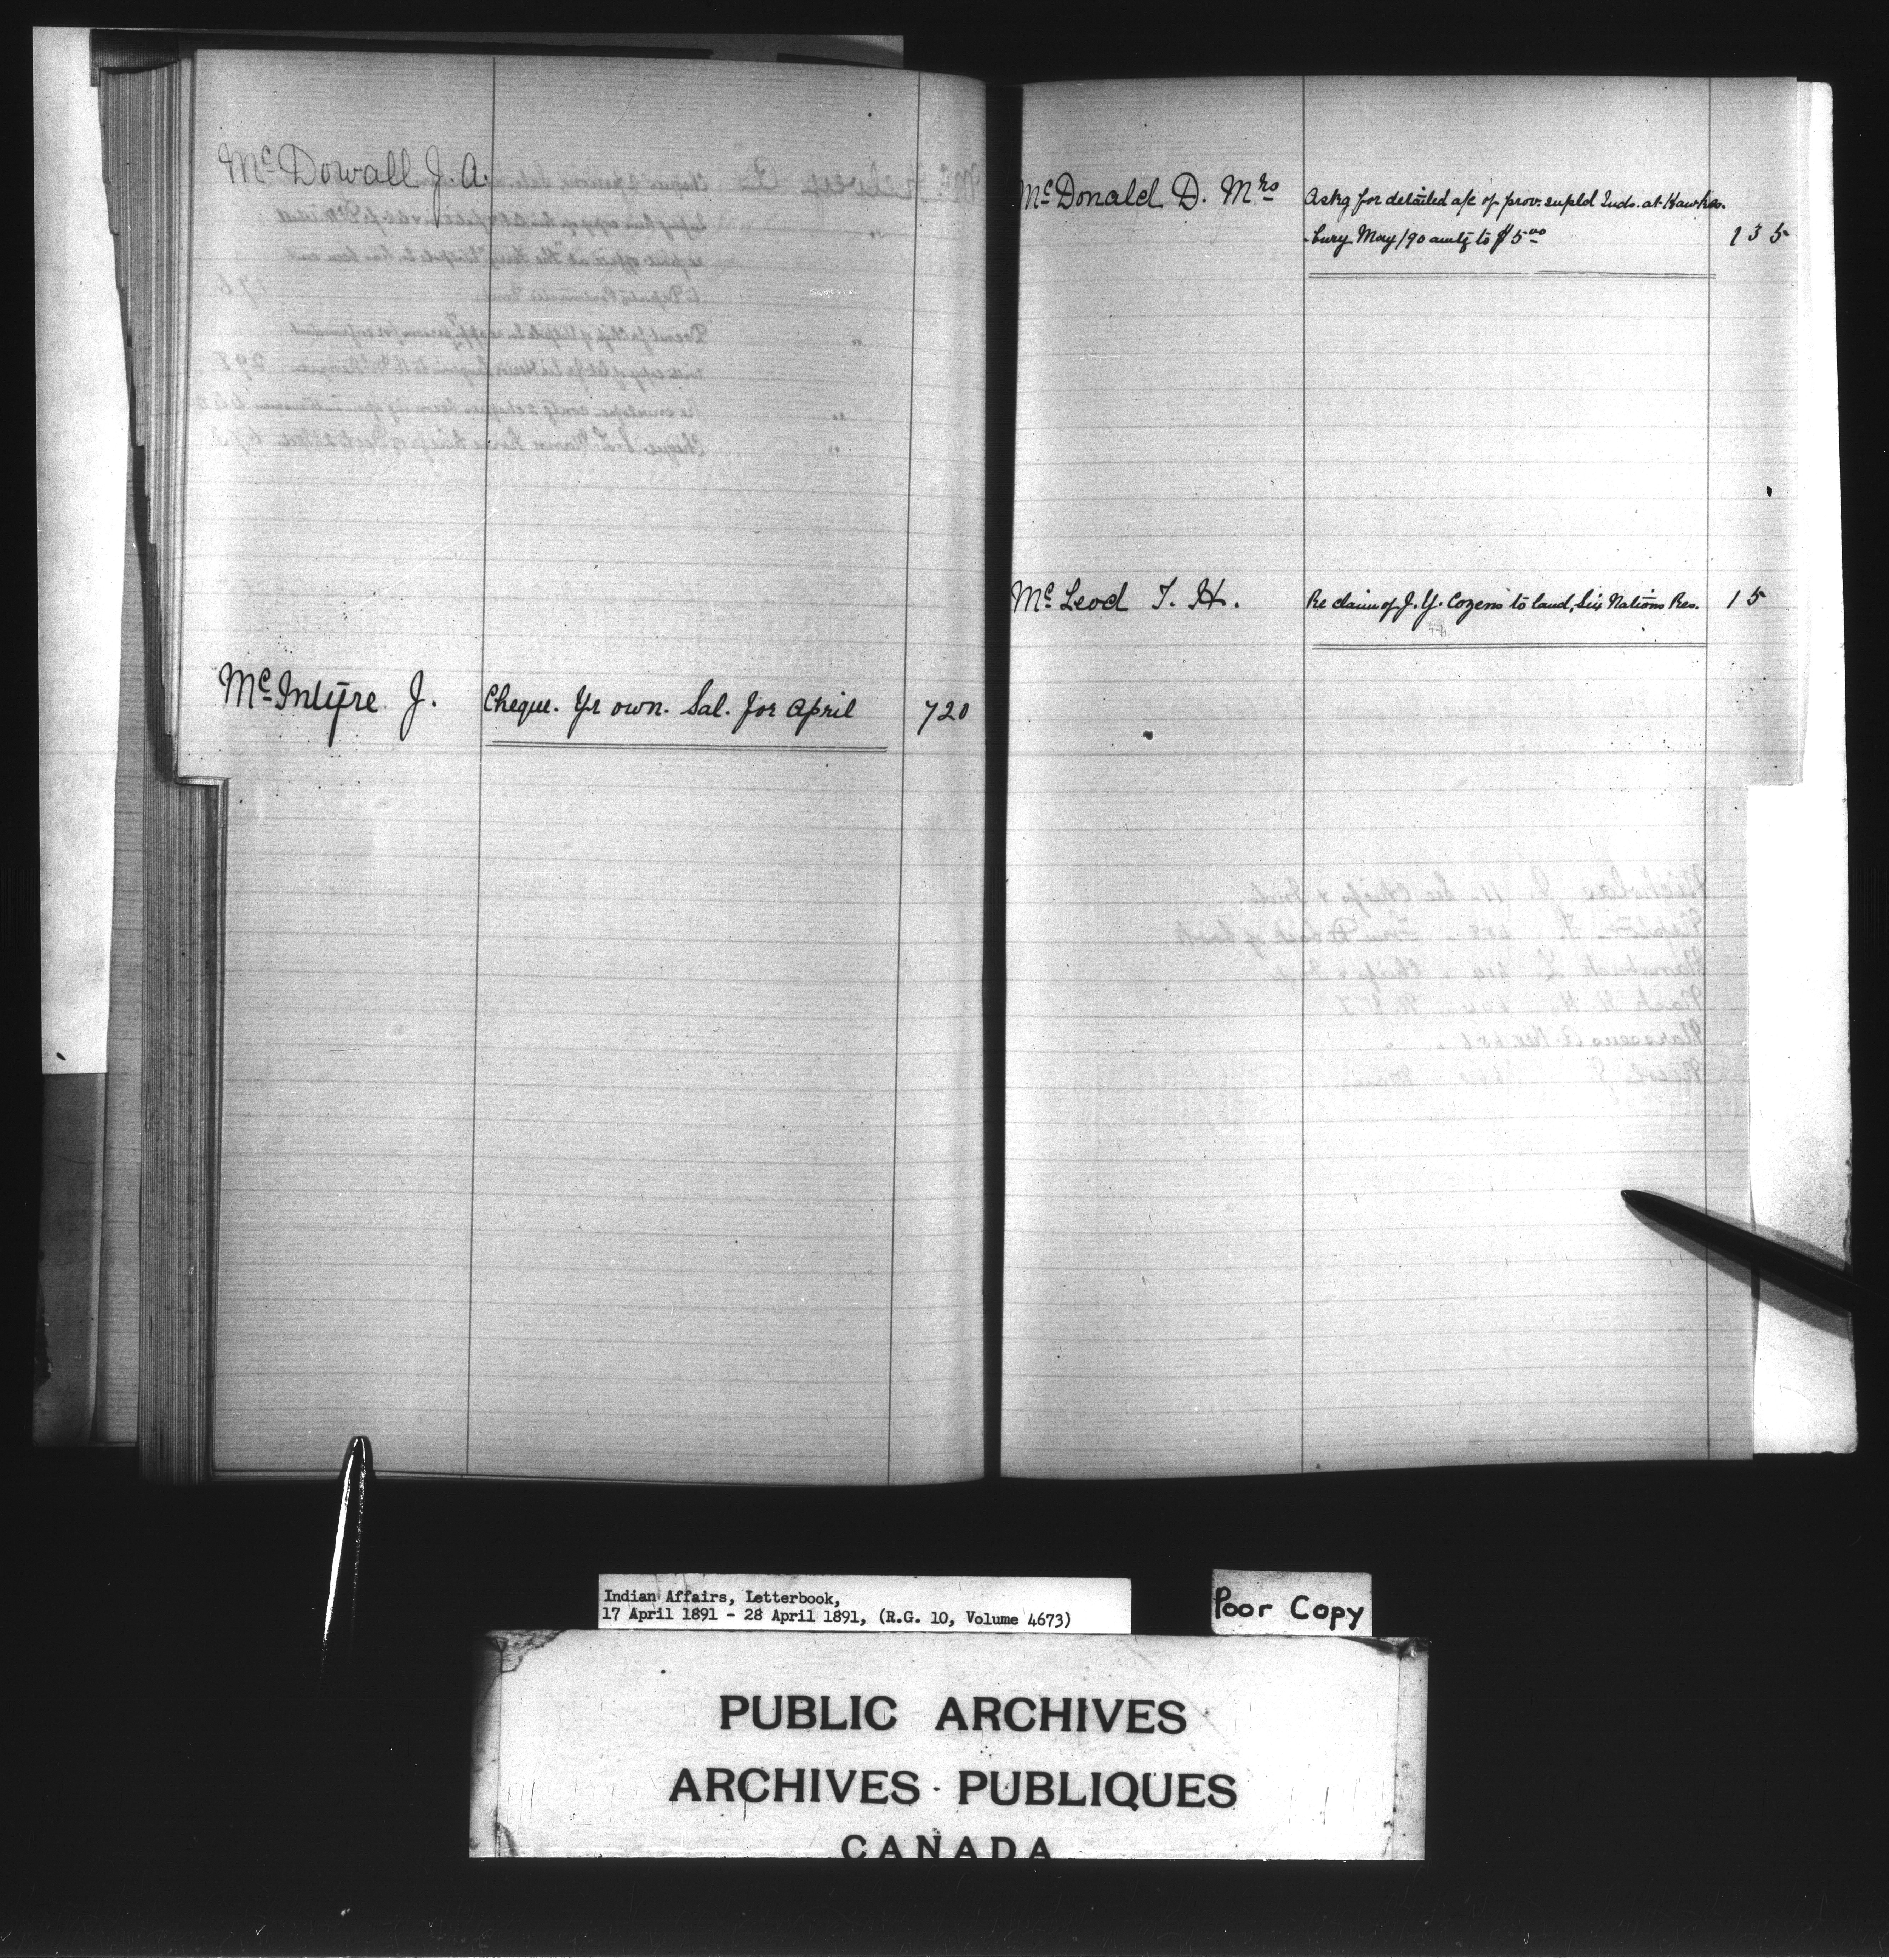 McDowall J. A.
McIntyre J. Cheque. Yr own. Sal. for April 720
McDonald D. Mrs Askg for detailed a/c of prov. supld Inds. at Hawkes-
-bury May/90 amtg to $5.00 135
McLeod T. H. Re claim of J. Y. Cozens to land, Six Nations Res. 15
Indian Affairs, Letterbook,
17 April 1891 - 28 April 1891, (R.G. 10, Volume 4673)
Poor Copy
PUBLIC ARCHIVES
ARCHIVES PUBLIQUES
CANADA